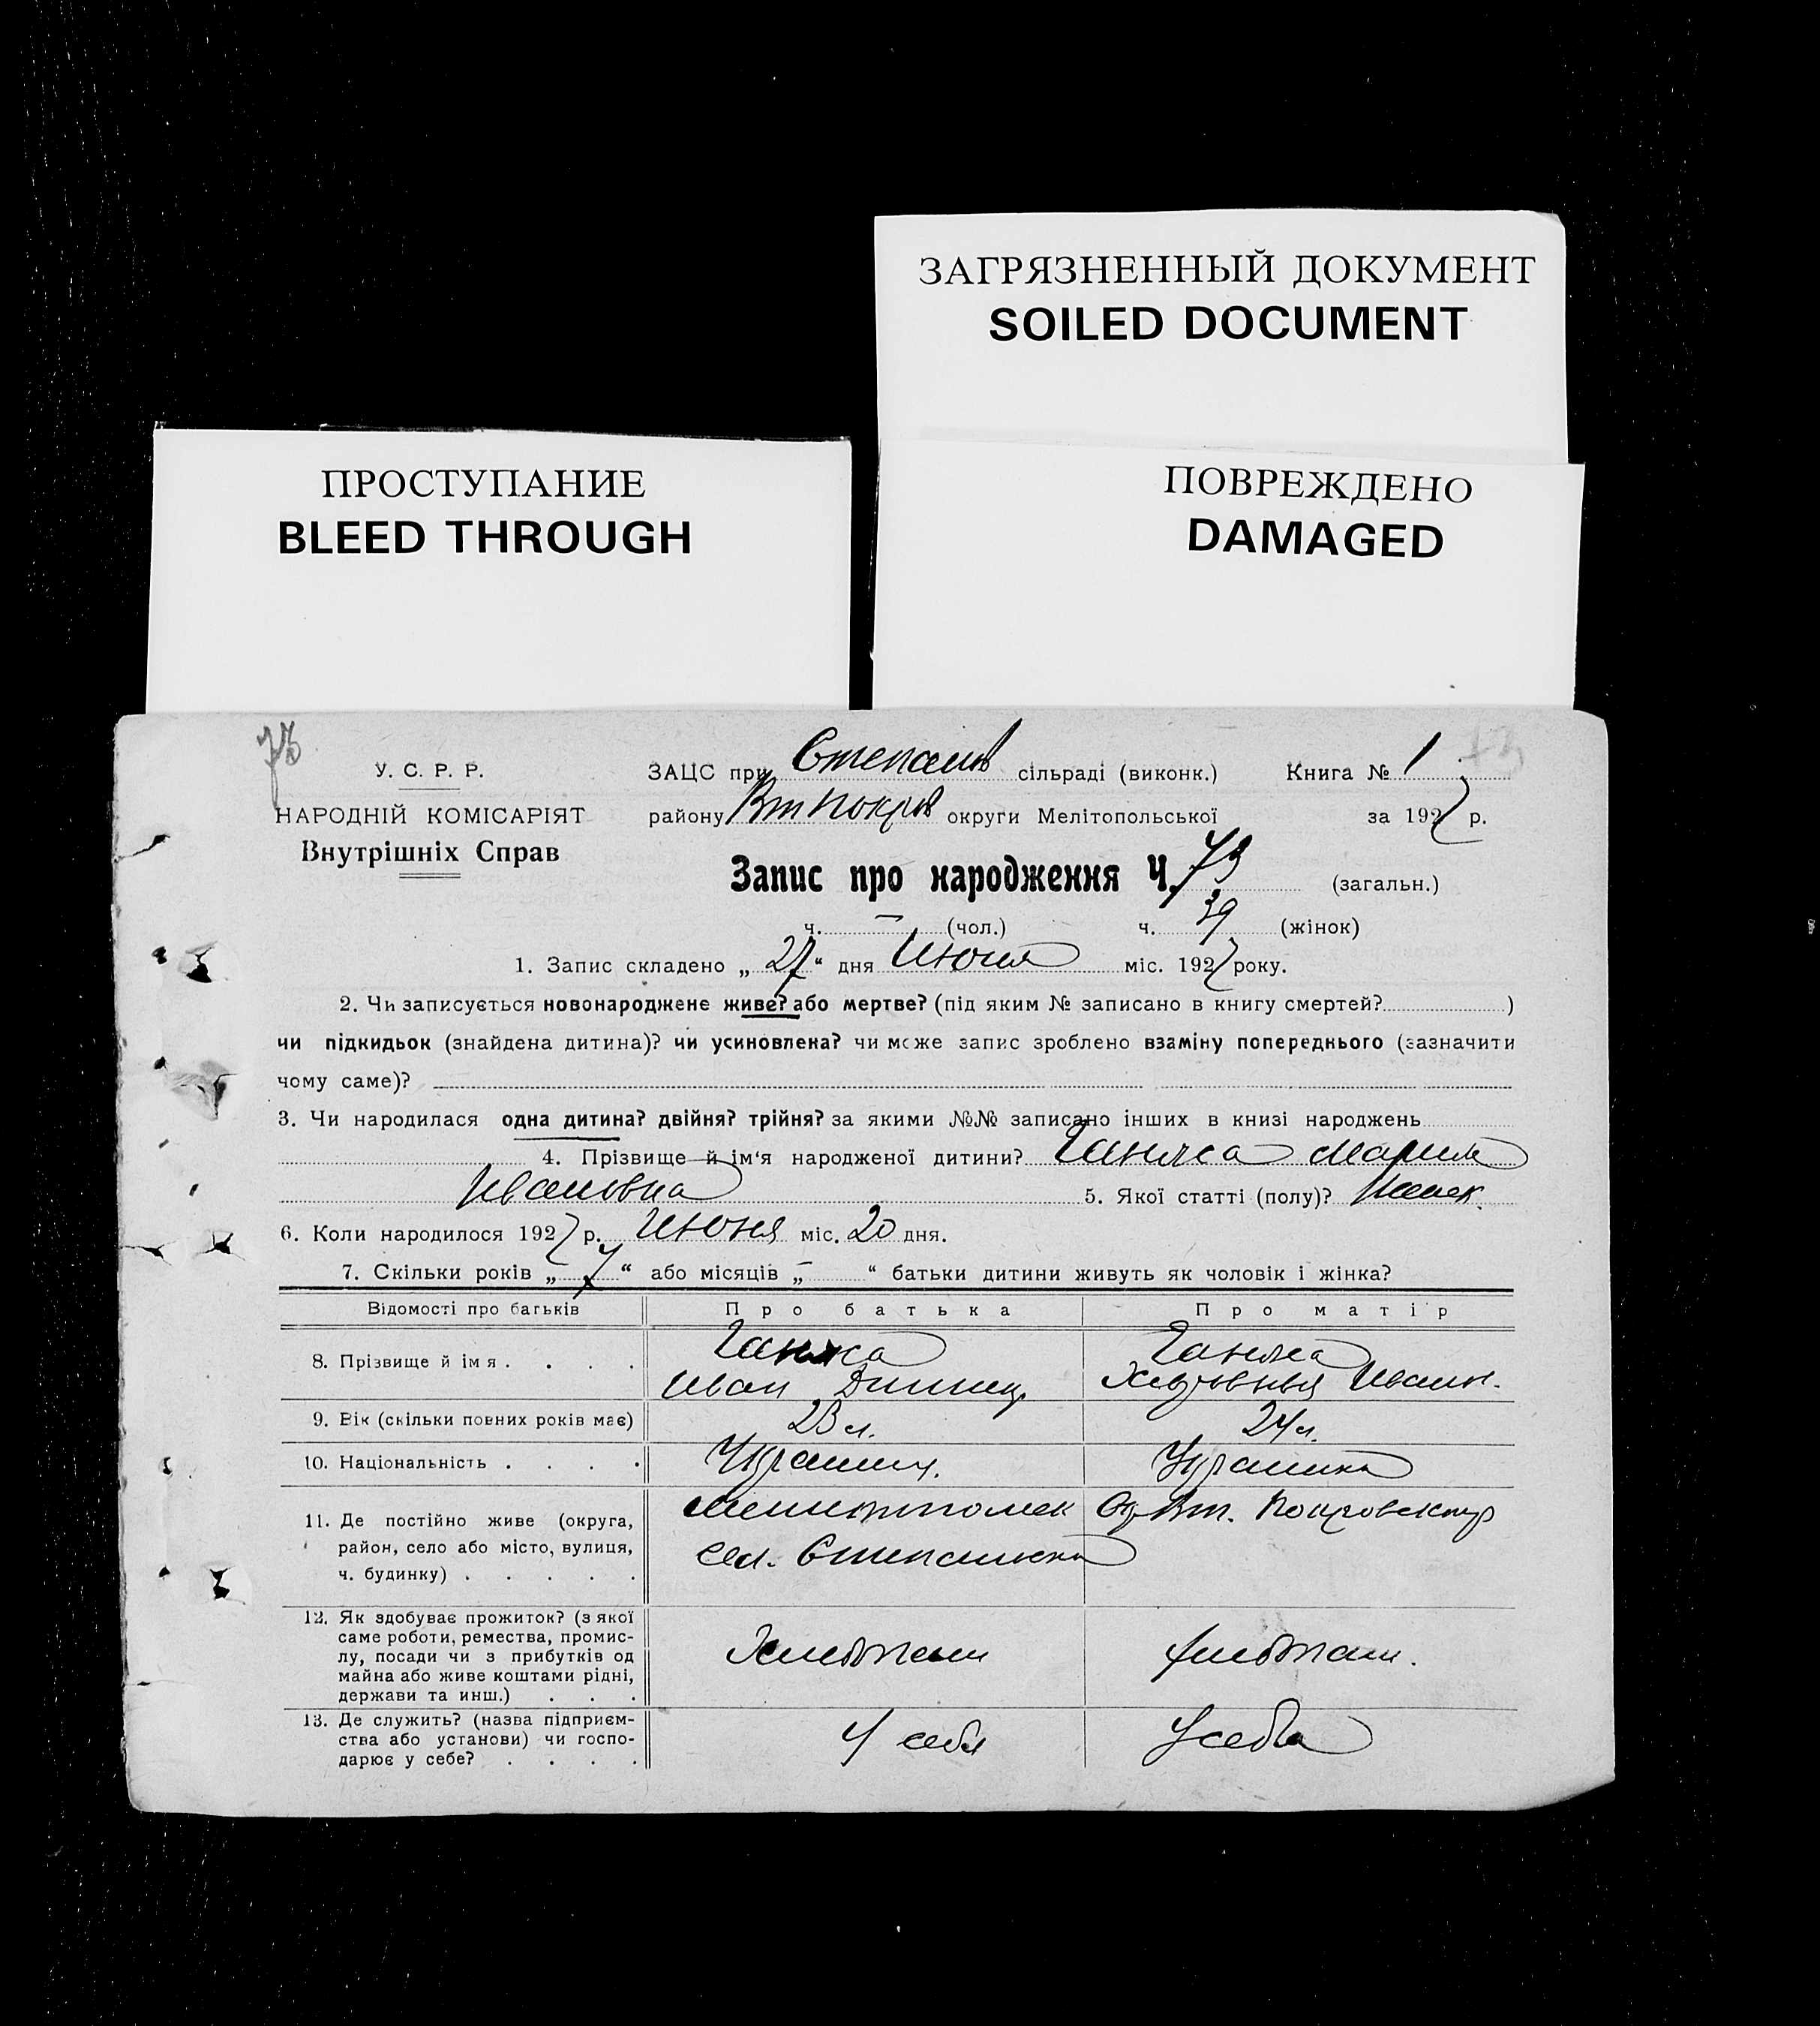 ЗАГРЯЗНЕННЫЙ ДОКУМЕНТ
SOILED DOCUMENT
ПРОСТУПАНИЕ
BLEED THROUGH
ПОВРЕЖДЕНО
DAMAGED
73
73
У. С. Р. Р.
НАРОДНІЙ КОМІСАРІЯТ
Внутрішніх Справ
ЗАЦС при Степанов сільраді (виконк.) Книга № 1
району Вт Покров округи Мелітопольської за 1927 р.
Запис про народження Ч. 73 (загальн.)
ч. — (чол.) ч. 39 (жінок)
1. Запис складено „ 27 “ дня Июня міс. 1927 року.
2. Чи записується новонароджене живе? або мертве? (під яким № записано в книгу смертей? )
чи підкидьок (знайдена дитина)? чи усиновлена? чи може запис зроблено взаміну попереднього (зазначити
чому саме)?
3. Чи народилася одна дитина? двійня? трійня? за якими №№ записано інших в книзі народжень
4. Прізвище й ім‘я народженої дитини? Ганжа Мария
Ивановна 5. Якої статті (полу)? женск
6. Коли народилося 1927 р. Июня міс. 20 дня.
7. Скільки років „ “ або місяців „ — “ батьки дитини живуть як чоловік і жінка?
Відомості про батьків Про батька Про матір
8. Прізвище й імя . . . . Ганжа Ганжа
Иван Иван.
9. Вік (скільки повних років має) 23 л. 24 л.
10. Національність . . . . Украинец. Украинка
11. Де постійно живе (округа, район, село або місто, вулиця, ч. будинку) . . . . . Мелитополск Окр Вт. Покровск
сел. Степановка
12. Як здобуває прожиток? (з якої саме роботи, ремества, промис-
лу, посади чи з прибутків од
майна або живе коштами рідні,
держави та инш.) . . . Хлебопаш хлебопаш.
13. Де служить? (назва підприєм-
ства або установи) чи госпо-
дарює у себе? . . . . У себя У себя